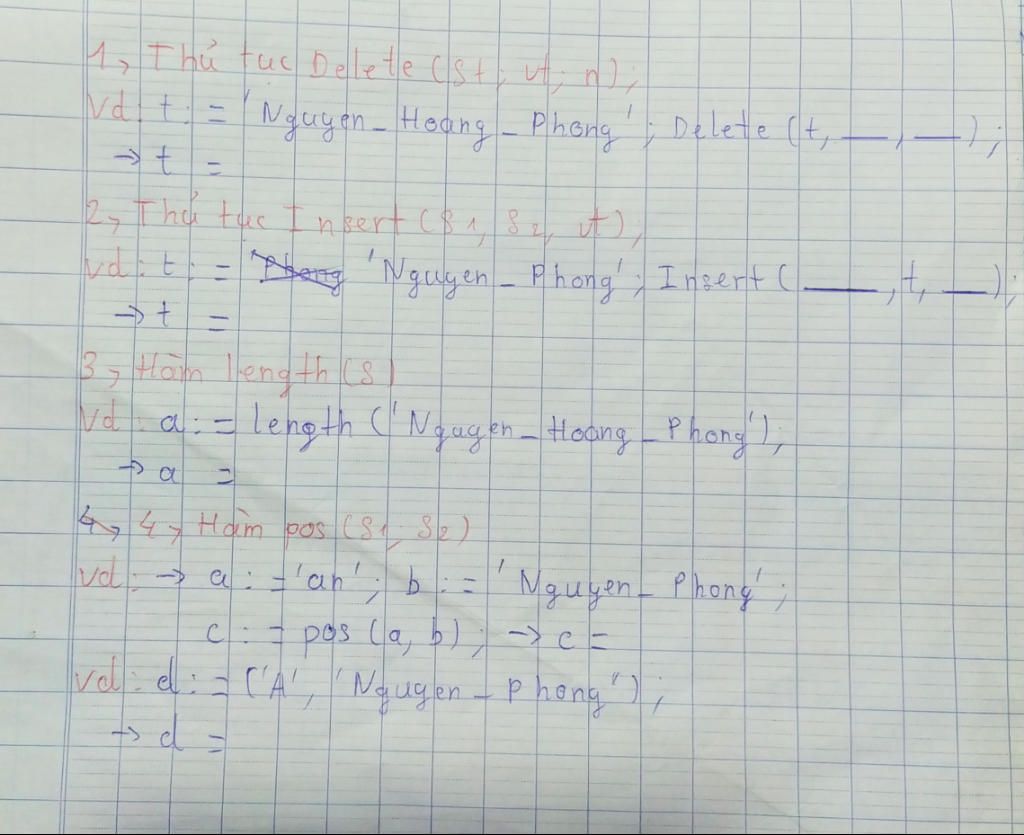 1, Thủ tục Delete (St; vt; n);
Vd: t: = 'Nguyen_Hoang_Phong'; Delete (t, __, __);
→ t =
2, Thủ tục Insert (S1, S2, vt),
Vd: t: = 'Nguyen_Phong'; Insert (___, t, __);
→ t =
3, Hàm length (S)
Vd: a: = length ('Nguyen_Hoang_Phong');
→ a =
4, Hàm pos (S1, S2)
Vd: → a: = 'an'; b: = 'Nguyen_Phong';
c: = pos (a, b); → c =
Vd: d: = ('A', 'Nguyen_Phong');
→ d =